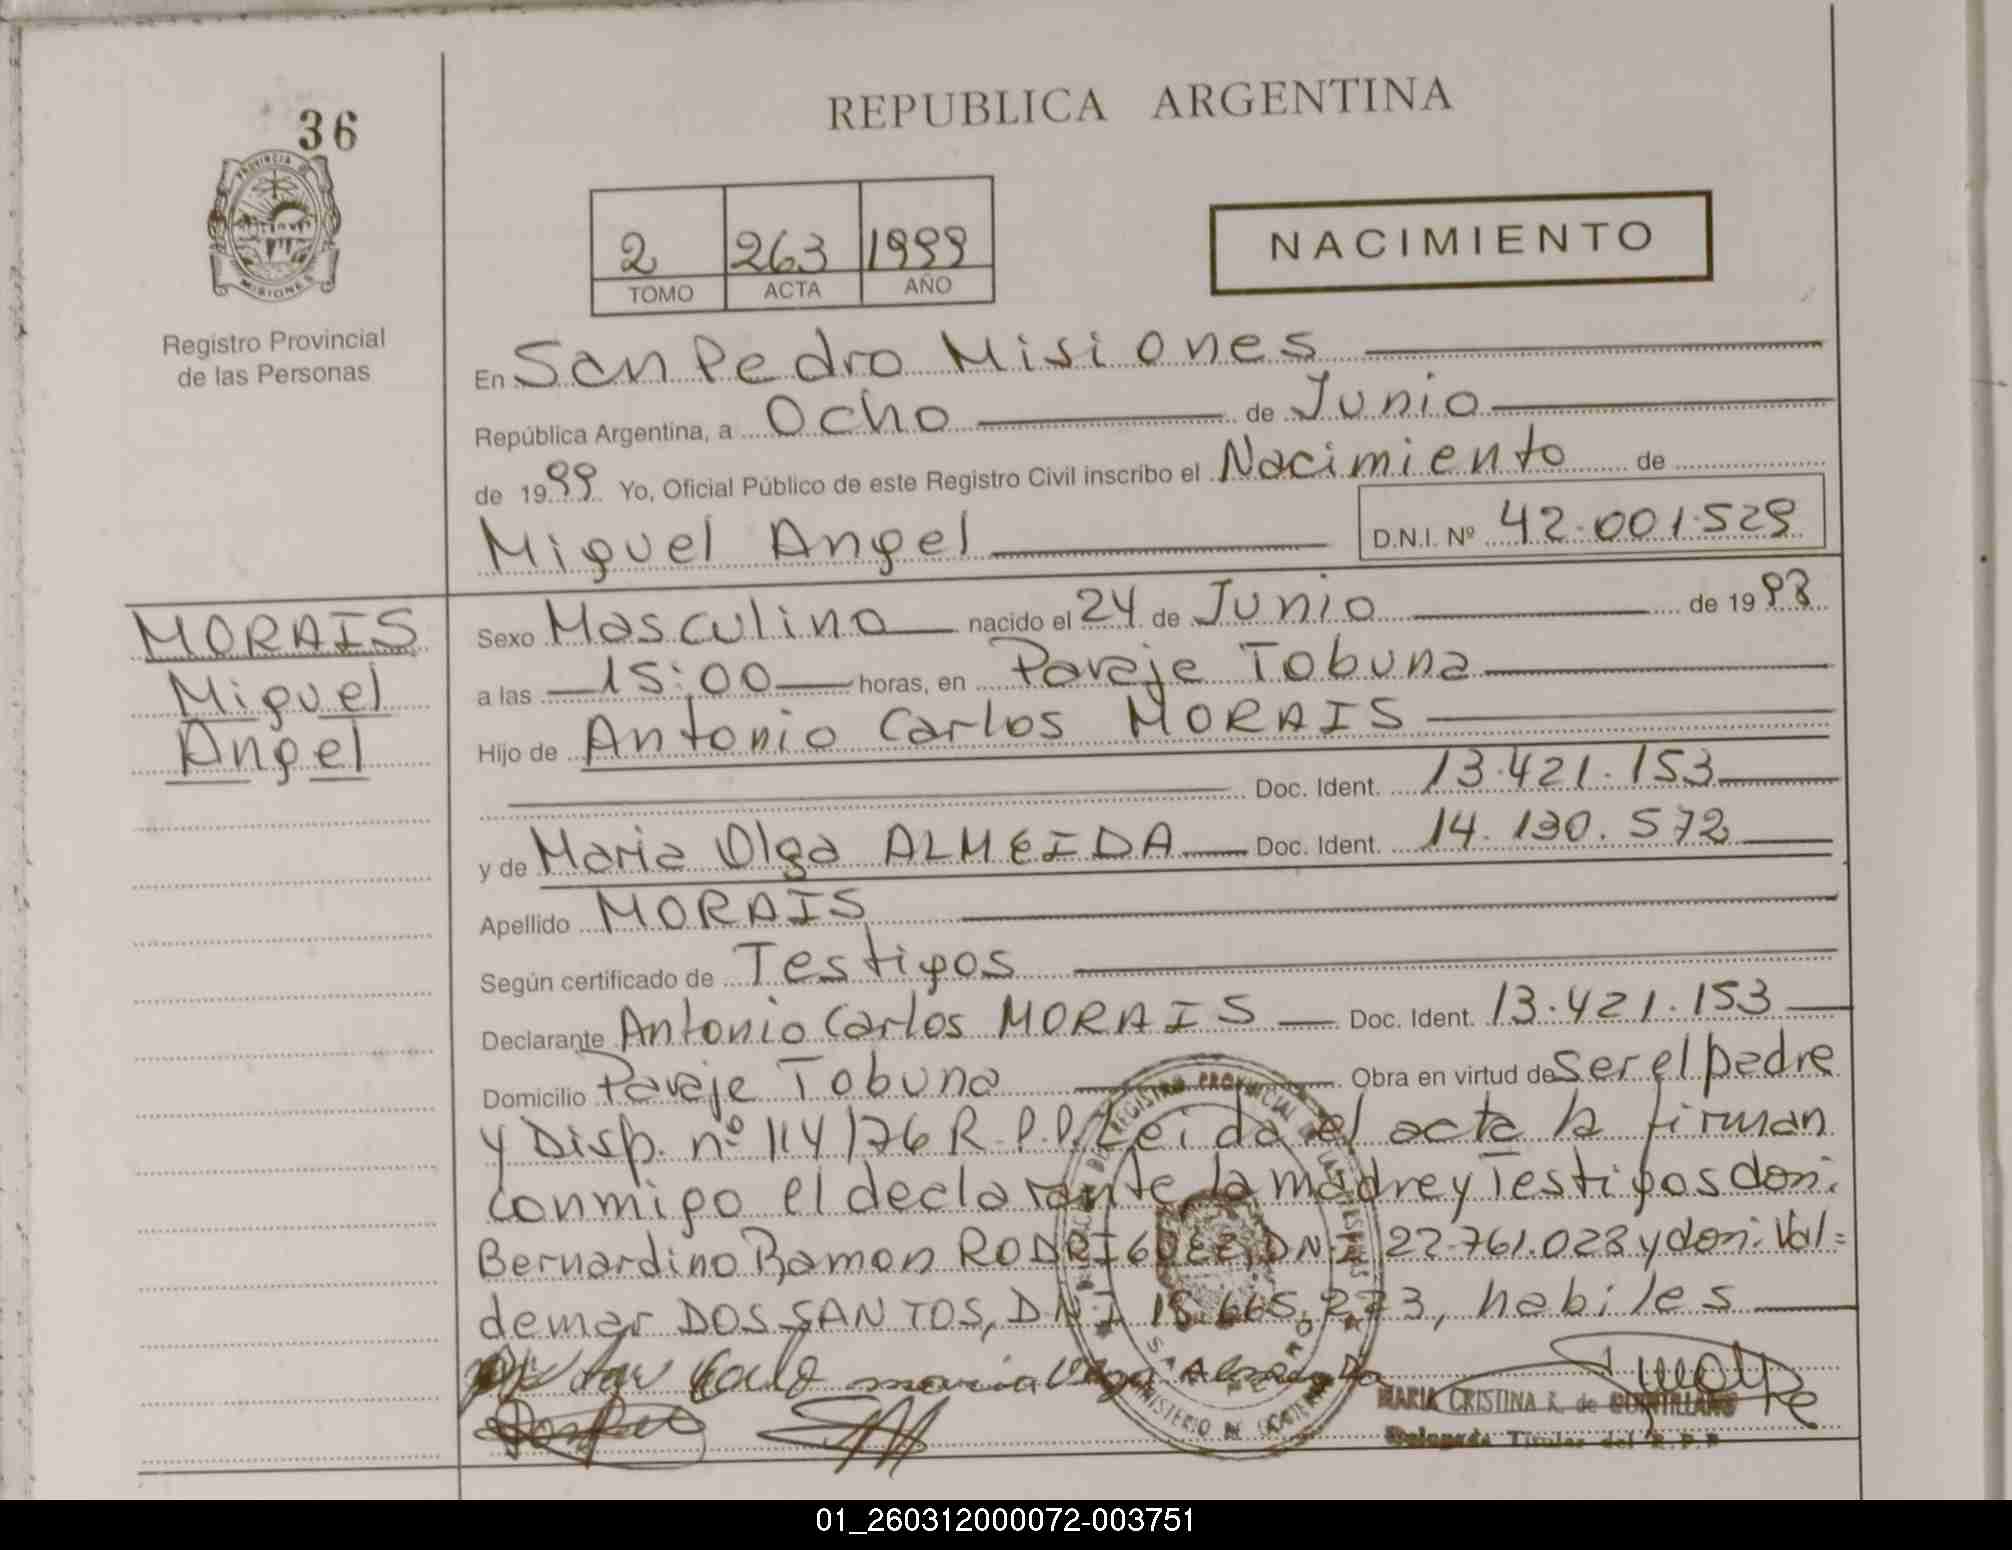 36
PROVINCIA DE
MISIONES
Registro Provincial
de las Personas
REPUBLICA ARGENTINA
2 263 1999
TOMO ACTA AÑO
NACIMIENTO
En San Pedro Misiones
República Argentina, a Ocho de Junio
de 1999 Yo, Oficial Público de este Registro Civil inscribo el Nacimiento de
Miguel Angel D.N.I. Nº 42.001.529
MORAIS
Miguel
Angel
Sexo Masculino nacido el 24 de Junio de 1998
a las 15:00 horas, en Paraje Tobuna
Hijo de Antonio Carlos MORAIS
Doc. Ident. 13.421.153
y de Maria Olga ALMEIDA Doc. Ident. 14.130.572
Apellido MORAIS
Según certificado de Testigos
Declarante Antonio Carlos MORAIS Doc. Ident. 13.421.153
Domicilio Paraje Tobuna Obra en virtud de Ser el padre
y Disp. nº 114/76 R.P.P. Leida el acta la firman
conmigo el declarante la madre y Testigos don:
Bernardino Ramon RODRIGUEZ, DNI 22.761.028 y don: Val=
demar DOS SANTOS, DNI 18.665.273, habiles
maria Olga
MARIA CRISTINA R. de
Delegada Titular del R.P.P
01_260312000072-003751